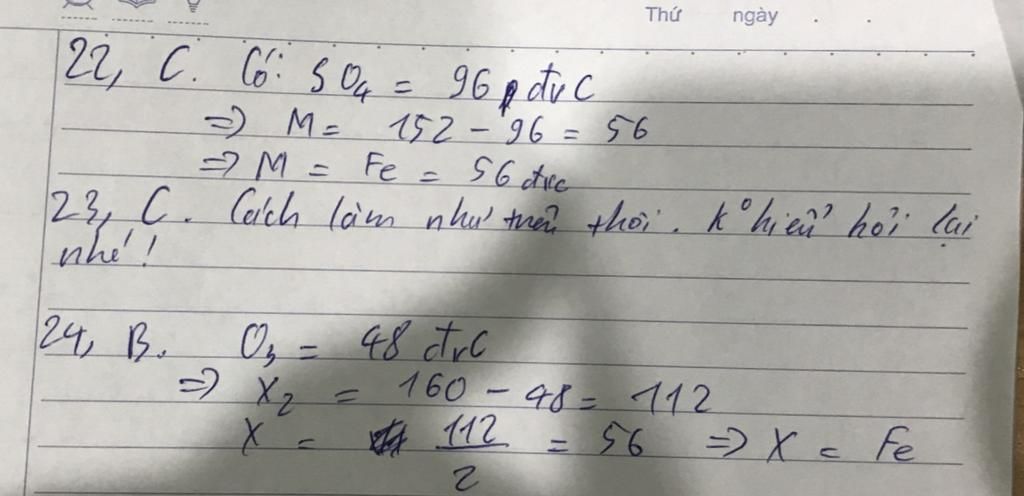 Thứ ngày . .
22, C. Có: SO₄ = 96 đvC
=> M = 152 - 96 = 56
=> M = Fe = 56 đvc
23, C. Cách làm như trên thôi. K° hiểu hỏi lại
nhé!
24, B. O₃ = 48 đvC
=> X₂ = 160 - 48 = 112
X = 112/2 = 56 => X = Fe